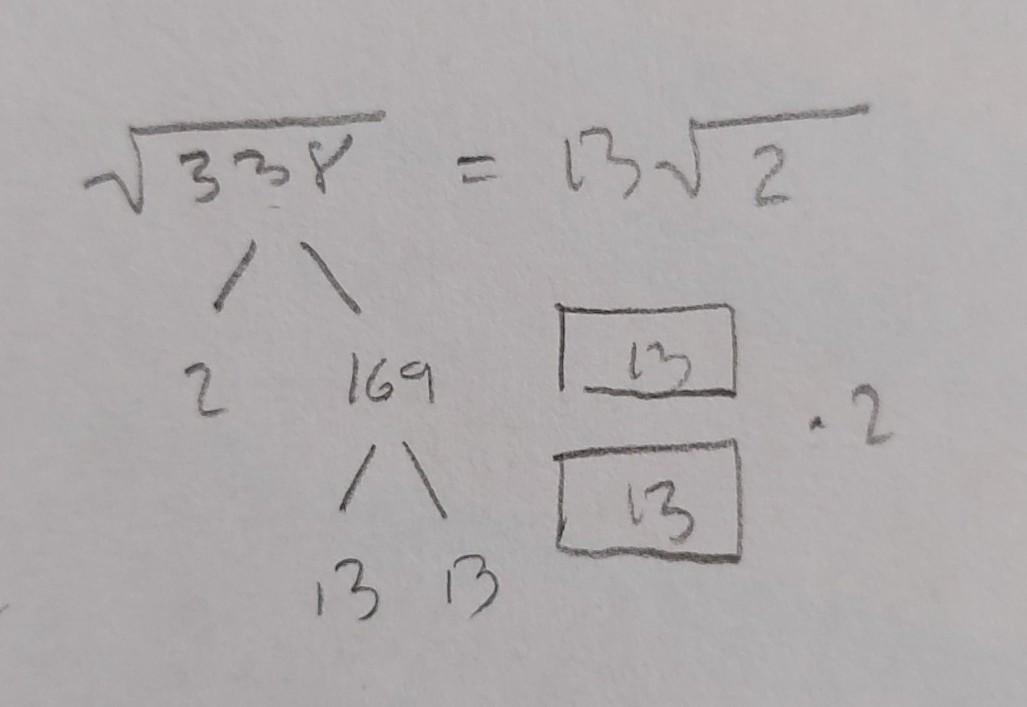 √338 = 13√2
2 169
13
13
· 2
13 13